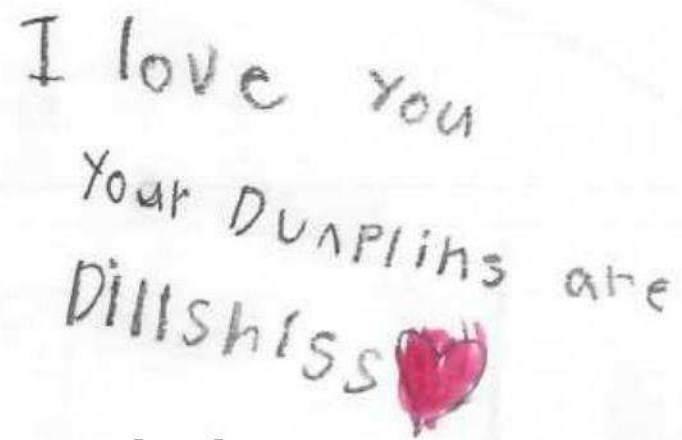 I love You
Your Dunplins are
Dillshiss